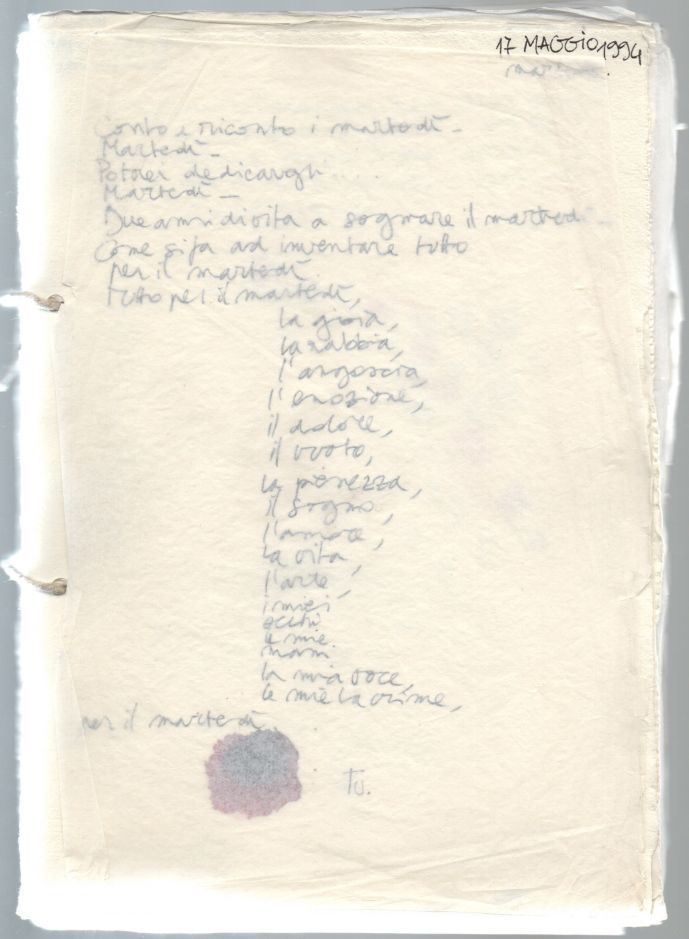 17 MAGGIO 1994
Conto e riconto i martedì -
Martedì -
Potrei dedicargli ....
Martedì -
Due anni di vita a sognare il martedì -
Come si fa ad inventare tutto
per il martedì
tutto per il martedì,
la gioia,
la rabbia,
l'angoscia,
l'emozione,
il dolore,
il vuoto,
la pienezza,
il sogno,
l'amore,
la vita,
l'arte,
i miei
occhi
le mie
mani
la mia voce,
le mie lacrime,
per il martedì
Tu.